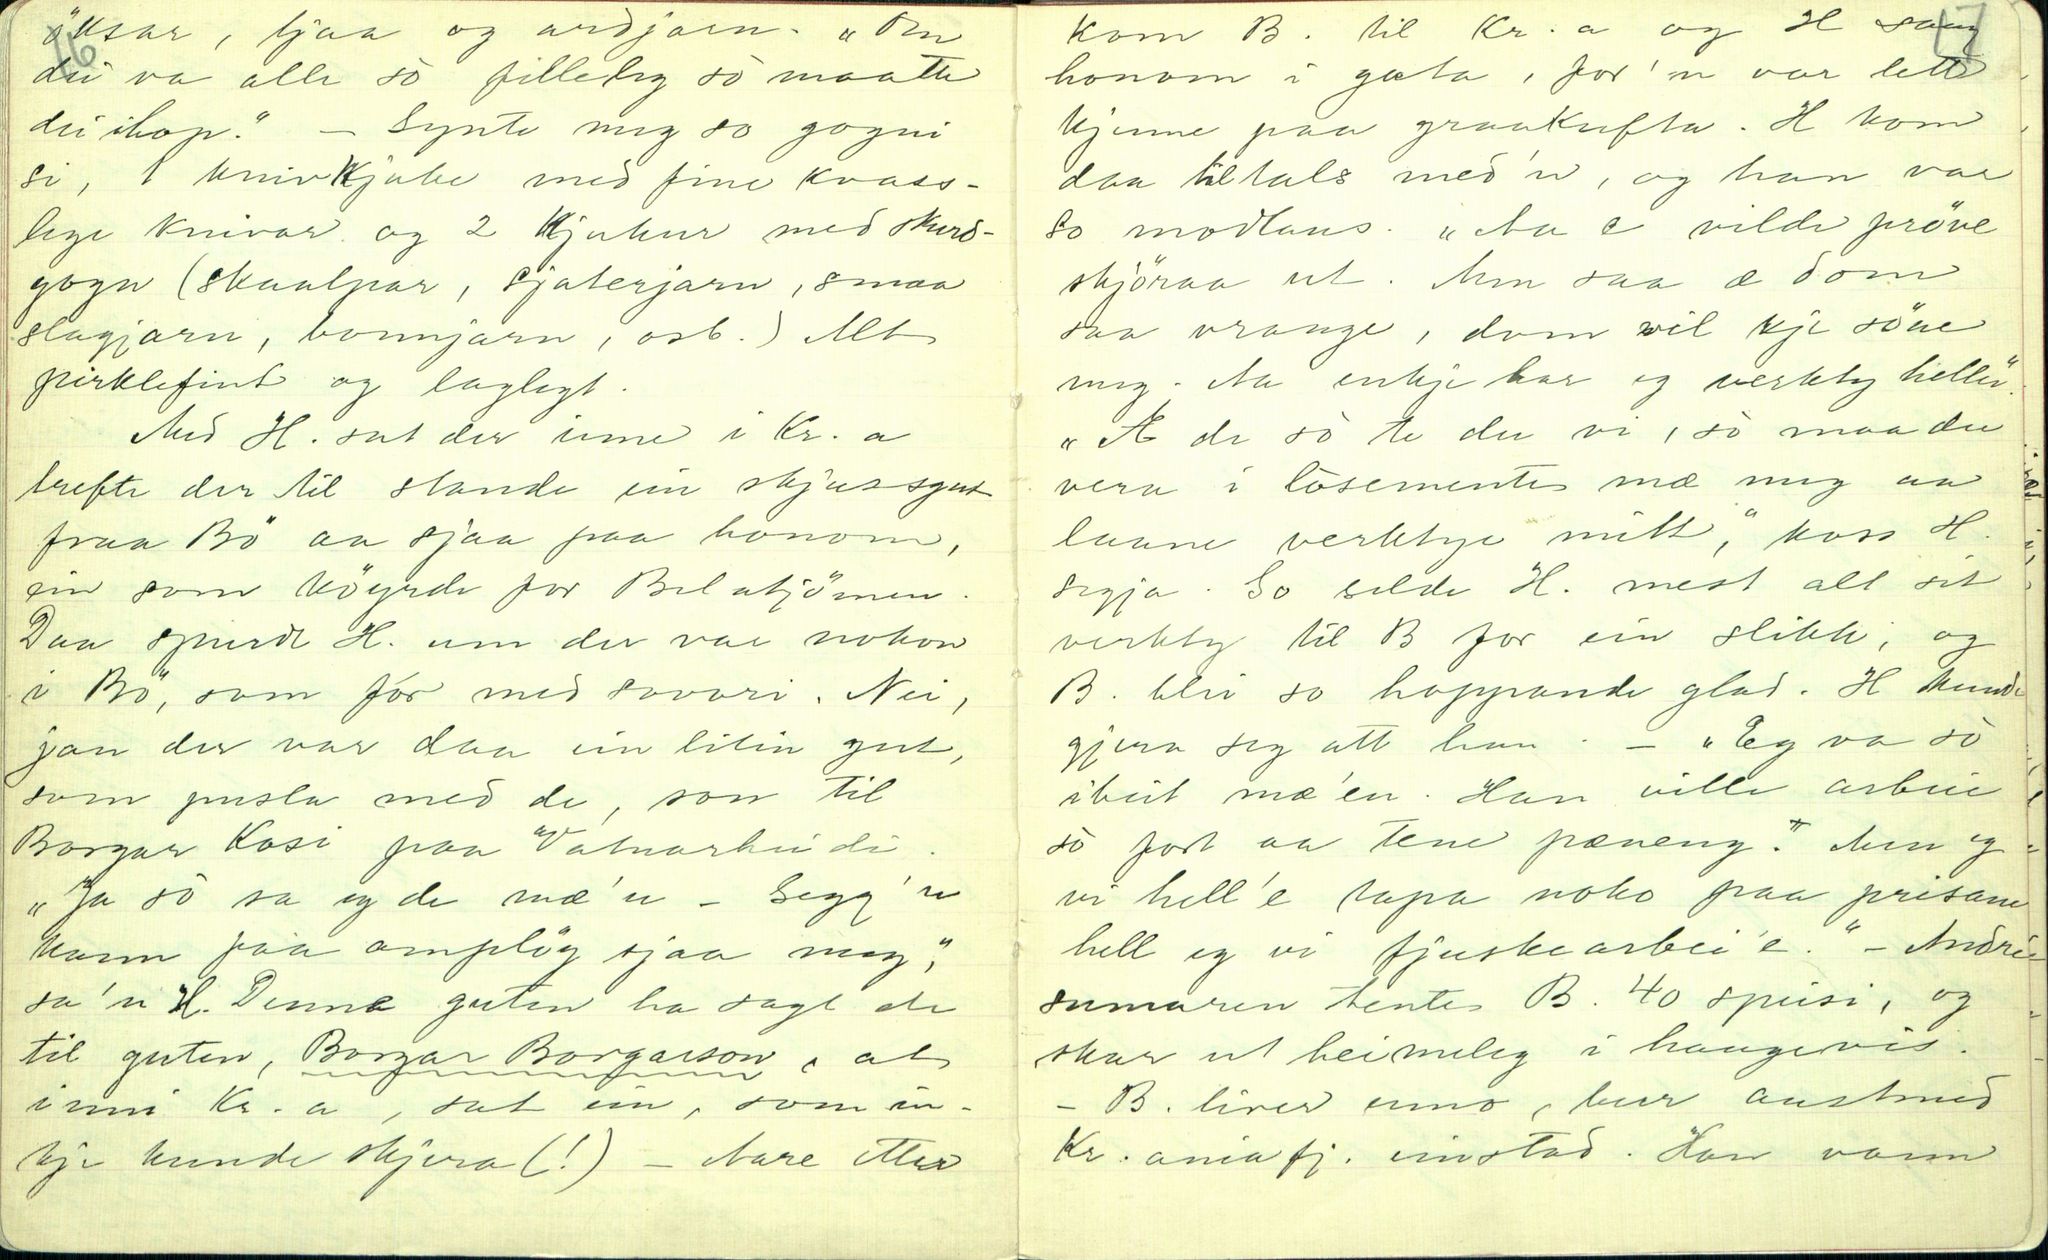 16
öksar, ljaa og ardjarn. „Om
dei va alle sò filleleg sò maatte
dei ihop." — Synte meg so gogni
si, 1 knivkjuke med fine kvass-
lege knivar og 2 kjukur med skurd-
gogn (skaalpar, sjaterjarn, smaa
slagjarn, bonnjarn, osb.) Alt
pirklefint og laglegt.
Med H. sat der inne i Kr.a
trefte der til stande ein skjussgut
fraa Bö aa sjaa paa honom,
ein som köyrde for Belakjömen.
Daa spurde H. um der var nokon
i Bö, som fór med sovori. Nei,
jau der var daa ein litin gut,
som pusla med de, son til
Borgar Kasi paa Vatnarheidi.
„Ja sò sa eg de mæ'n — Segg'n
kann faa ampløg sjaa meg",
sa'n H. Denne guten ha sagt de
til guten, Borgar Borgarson, at
inni Kr.a, sat ein, som in-
kje kunde skjera (!) — Aare etter
17
kom B. til Kr.a og H saag
honom i gata, for'n var lett
kjenne paa graakufta. H kom
daa tiltals med'n, og han var
so modlaus. „Aa e vilde pröve
skjöraa ut. Men saa æ dom
saa vrange, dom vil kje söne
meg. Aa inkje har eg verkty heller".
„Æ de sò te du vi, sò maa du
vera i lòsemente mæ meg aa
laane verktye mitt," koss H.
segja. So selde H. mest alt sit
verkty til B for ein slikk, og
B. blei so hoppande glad. H kunde
gjera seg att han. — „Eg va sò
ibeit mæ'en. Han ville arbeie
sò fort aa tene pæneng." Men eg
vi hell'e tapa noko paa prisane
hell eg vi fjuskearbei'e." — Andre
sumaren tente B. 40 speisi, og
skar ut heimeleg i haugevis.
— B. liver enno, bur austmed
Kr.aniafj. einstad. Han vann